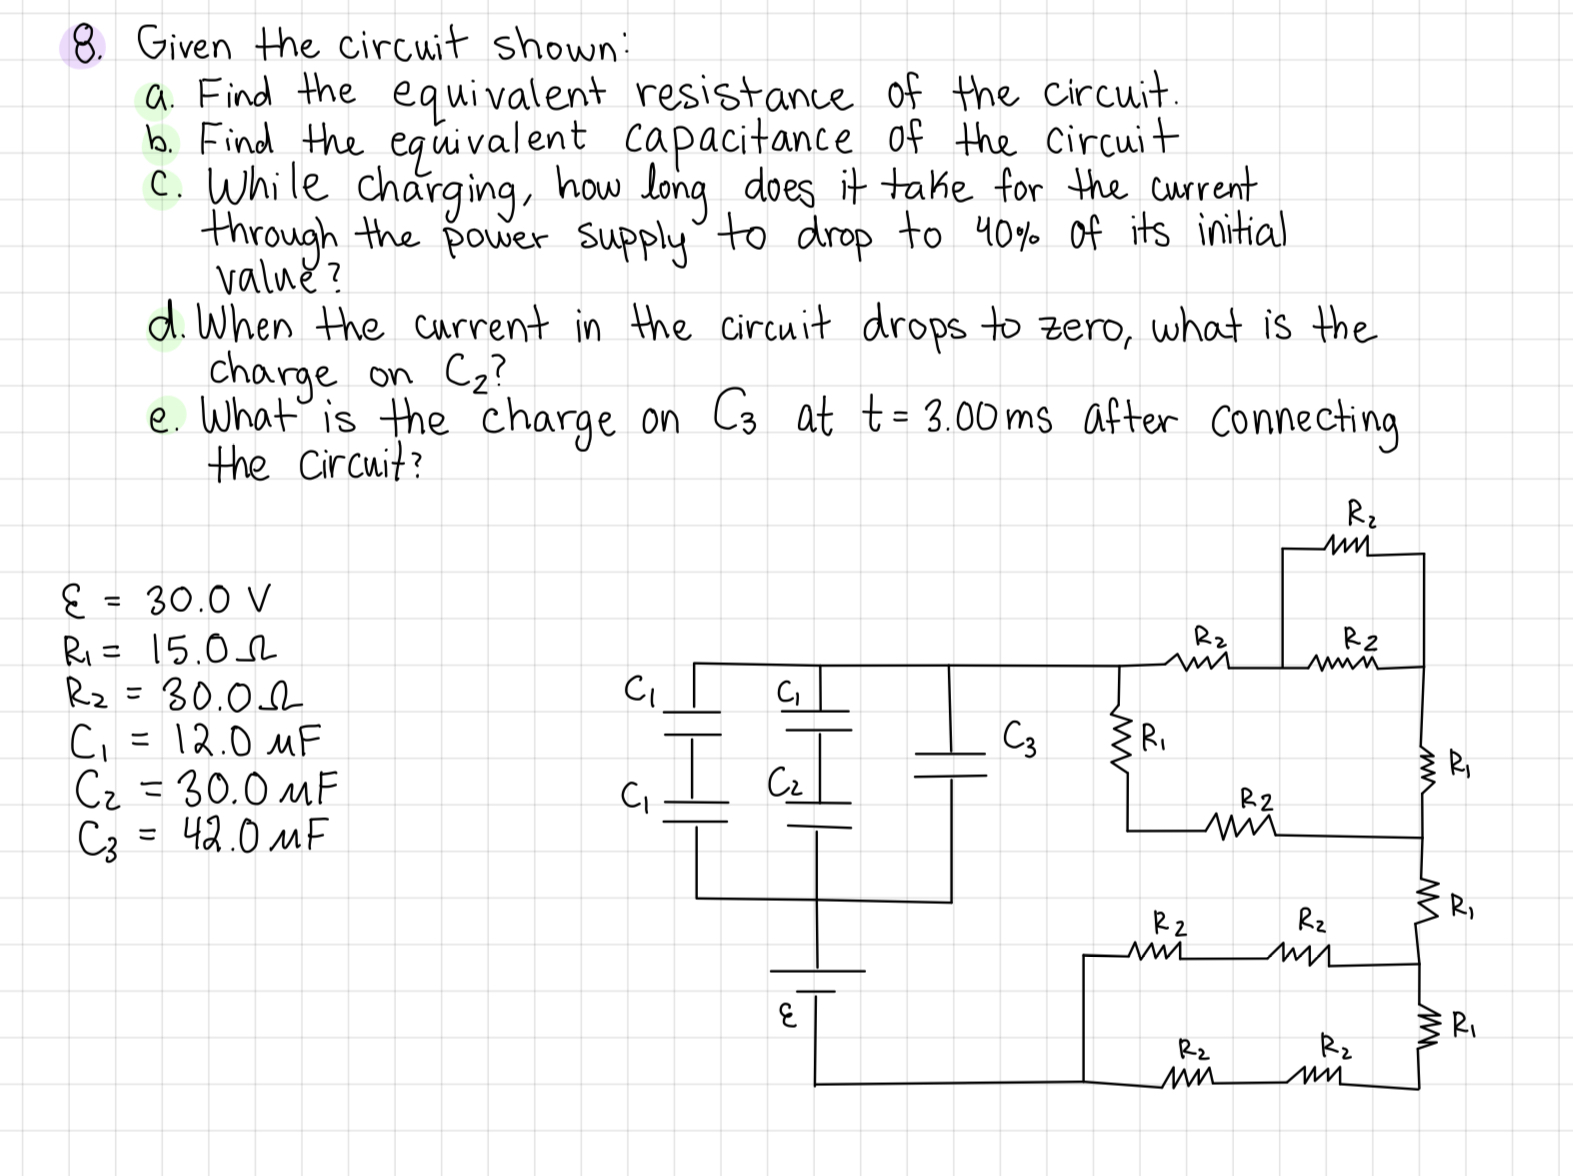 8. Given the circuit shown:
a. Find the equivalent resistance of the circuit.
b. Find the equivalent capacitance of the circuit
c. While charging, how long does it take for the current
through the power supply to drop to 40% of its initial
value?
d. When the current in the circuit drops to zero, what is the
charge on C₂?
e. What is the charge on C₃ at t = 3.00 ms after connecting
the circuit?
R₂
ℰ = 30.0 V
R₁ = 15.0 Ω
R₂ = 30.0 Ω
C₁ = 12.0 μF
C₂ = 30.0 μF
C₃ = 42.0 μF
R₂
R₂
C₁
C₁
C₃
R₁
R₁
C₁
C₂
R₂
R₂
R₂
R₁
ℰ
R₂
R₂
R₁